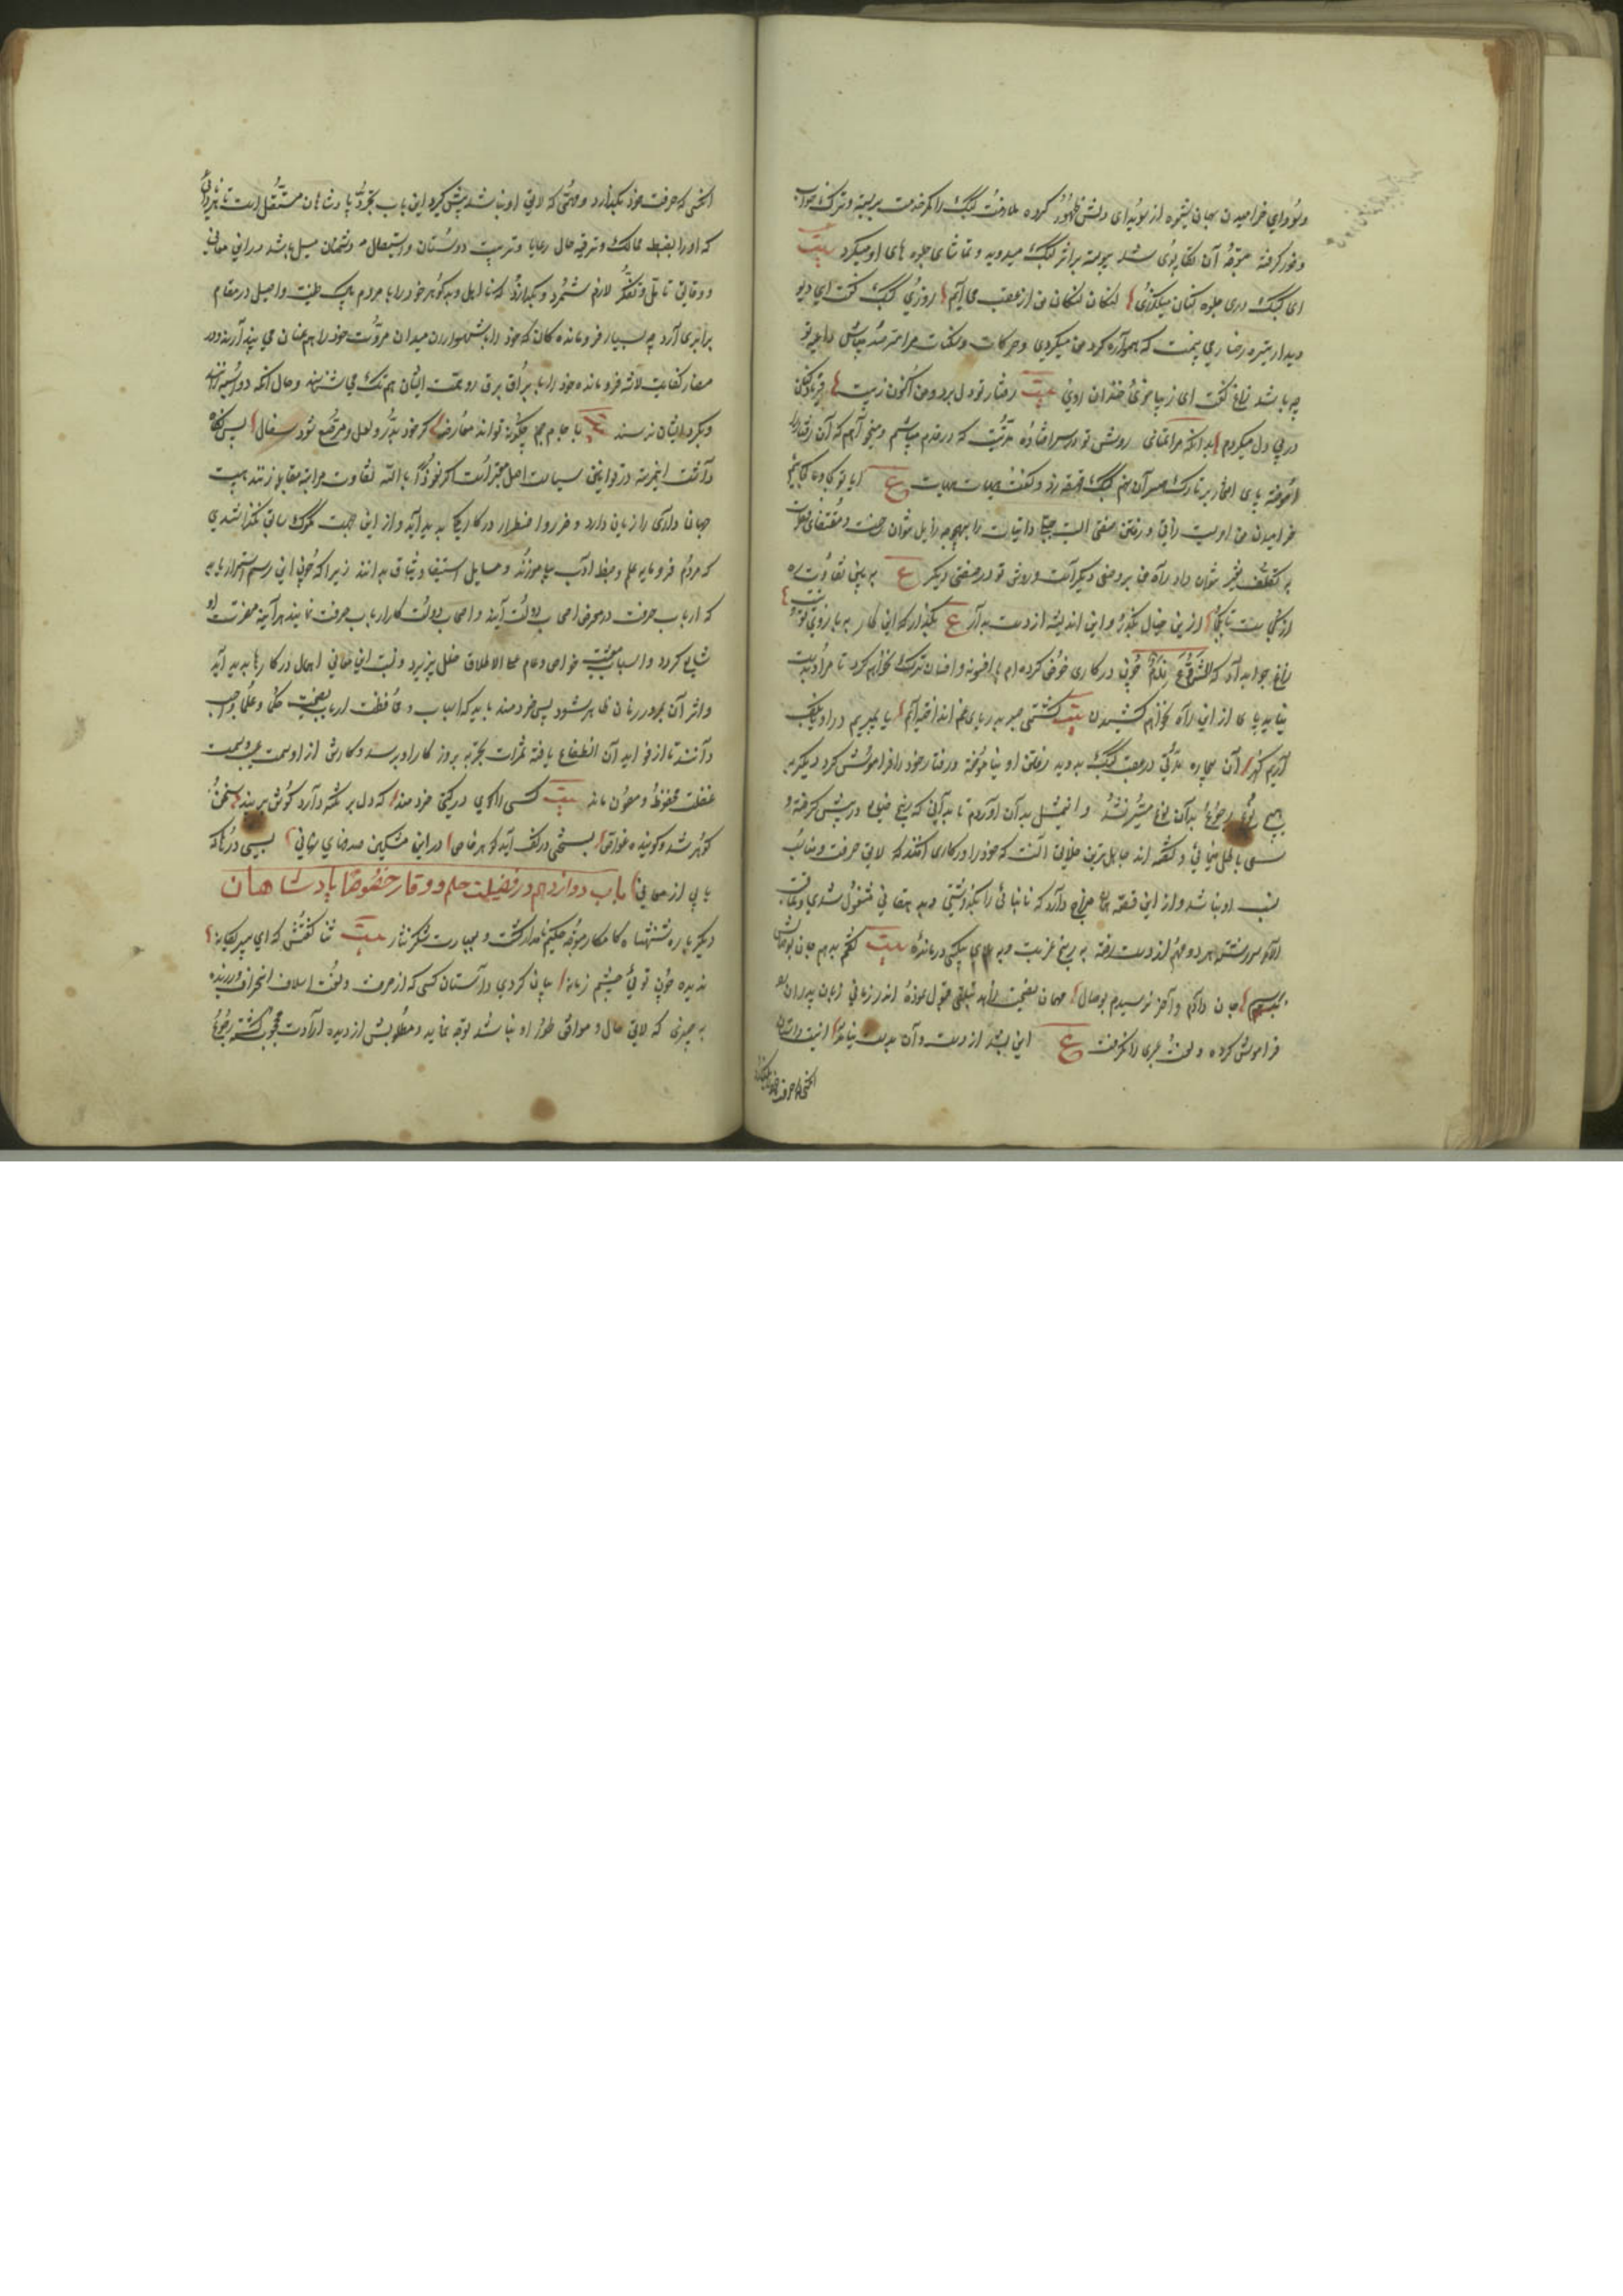 وسودای خرامیدن بهمان شیوه از سویدای دلش ظهور کرده ملازمت کبک را کمر خدمت بربسته و ترک خواب
وخور گرفته متوجه آن تکاپوی شد پیوسته بر اثر کبک میدوید و تماشای جلوه های او میکرد بیت
ای کبک دری جلوه کنان میگذری لنگان لنگان من از عقب می آیم روزی کبک گفت ای دیو
دیدار تیره رخسار می بینمت که همواره گرد من میگردی و حرکات و سکنات مرا مترصد میباشی داعیه تو
چه باشد زاغ گفت ای زیبا خوی خندان روی بیت رفتار تو دل برد و من اکنون زپیت
در پی دل میگردم بدانکه مرا تمنای روش تو در سر افتاده مدتیست که در قدم میباشم و میخواهم که آن رفتار را
آموخته پای افتخار بر تارک همسران نهم کبک قهقهه زد و گفت هیهات هیهات ع آیا تو کجا و ما کجائیم
خرامیدن من امریست ذاتی و رفتن صفتی است جبلی ذاتیات را بهیچوجه زایل نتوان ساخت و مقتضای فطرت
به تکلف تغییر نتوان داد راه من بر وضعی دیگر است و روش تو در صفتی دیگر ع به بین تفاوت ره
از کجاست تا بکجا ازین خیال بگذر و این اندیشه از دست بدار ع بگذار که این کار به بازوی تو نیست
زاغ جواب داد که الشروع ملزم چون در کاری خوض کرده ام به افسون و افسانه ترک نخواهم کرد تا مراد بدست
نیاید پای از این راه نخواهم کشیدن بیت کشتی صبر به دریای غم انداخته ایم یا بمیریم در او یا بکف
آریم گهر آن بیچاره مدتی در عقب کبک بدوید رفتن او نیاموخته و رفتار خود را فراموش کرد و دیگر به
هیچ نوع رجوع بدان نوع میسر نشد و این مثل بدان آوردم تا بدانی که رنجی ضایع در پیش گرفته و
سعی باطل مینمائی و گفته اند جاهل ترین خلایق آنست که خود را در کاری افکند که لایق حرفت و مناسب
نسب او نباشد و از این قصه مزاج دارد که نانبائی را بگذاشتی و به بقالی مشغول شدی و عاقبت
الامر سر رشته هر دو مهم از دست رفته به رنج غربت و به بلای بیکسی درمانده بیت گفتم بدهم جان بوصالش
برسم جان دادم و آخر نرسیدم بوصال مهمان نصیحت زاهد تلقی قبول نموده اندر زمانی زبان پدران
فراموش کرده و لغت عبری را نگرفت ع این بشد از دست و آن بدست نیامد اینست داستان
انکه حرفت خود بگذارد
انکس که حرفت خود بگذارد و مهمی که لایق او نباشد پیش گیرد این باب بتجرد پادشاهان متعلق است تا هر والی
که او را بضبط ممالک و ترفیه حال رعایا و تربیت دوستان و استیصال دشمنان میل باشد در این معانی
و دقایق تامل و تفکر لازم شمرد و نگذارد که نااهل و بدگوهر خود را با مردم پاک طینت و اصیل در مقام
برابری آرد چه بسیار فرومانده گان که خود را با شهسواران میدان مروت خود را هم عنان می پندارند و در
مضمار کفایت لاشه فرومانده خود را با براق برق رو همت ایشان هم تک می شناسند و حال آنکه دو اسپه تازند
و بگرد ایشان نرسند بیت با جام جم چگونه تواند معارضه گر خود به در و لعل مرصع شود سفال پس نگاه
داشت این مرتبه در قوانین سیاست اصل معتبر است اگر نعوذ بالله تفاوت مراتب مقابل نماند هیبت
جهان داری را زیان دارد و ضرر و اضطرار در کارها پدید آید و از این جهت ملوک سابق نگذاشتندی
که مردم فرومایه علم و خط و ادب بیاموزند و مسایل استیفا و سیاق بدانند زیرا که چون این رسم استمرار یابد
که ارباب حرفت در معرض اصحاب دولت آیند و اصحاب دولت کار ارباب حرفت نمایند هر آینه مضرت آن
شایع گردد و اسباب معیشت خواص و عوام علی الاطلاق خلل پذیرد و نسبت این معانی اهمال در کارها پدید آید
و اثر آن بمرور زمان ظاهر شود پس خردمند باید که اسباب محافظت ارباب نصیحت حکما و علما واجب
دانند تا از فواید آن انتفاع یافته ثمرات تجربه بروز کار او برسد و کارش از او سمت عیب و سمت
غفلت محفوظ و مصون ماند بیت کسی را کای در گیتی خردمند که دل بر نکته دارد گوش بر پند سخن
گوهر شد و گوینده غواص بسختی در کف آید گوهر خاص در این مشکین صدفهای نهانی بسی در ناک
یابی از معانی باب دوازدهم در فضیلت حلم و وقار خصوصا پادشاهان
دیگر باره شهنشاه کامکار متوجه حکیم نامدار گشت و بعبارت شکر نثار بیت ثنا گفتش که ای پیر یگانه
ندیده چون توئی چشم زمانه بیان کردی داستان کسی که از حرفت و لغت اسلاف انحراف ورزیده
به چیزی که لایق حال و موافق طور او نباشد توجه نماید و مطلوبش از دیده ارادت محجوب گشته رجوع